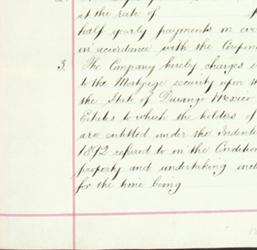 at the rate of
half yearly payments in
in accordance with the Coupons
3. The Company hereby charges
to the Mortgage security upon
the State of Durango Mexico
Estates to which the holders of
are entitled under the Indenture
1892 referred to in the Condition
property and undertaking
for the time being